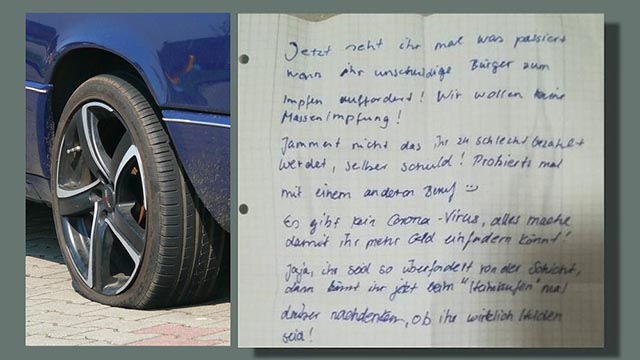 Jetzt seht ihr mal was passiert
wenn ihr unschuldige Bürger zum
Impfen auffordert! Wir wollen keine
Massenimpfung!
Jammert nicht das ihr zu schlecht bezahlt
werdet, selber schuld! Probierts mal
mit einem anderen Beruf
Es gibt kein Corona-Virus, alles mache
damit ihr mehr Geld einfordern könnt!
Jaja, ihr seid so überfordert von der Schicht,
dann könnt ihr jetzt beim "Heimlaufen" mal
drüber nachdenken, ob ihr wirklich Helden
seid!